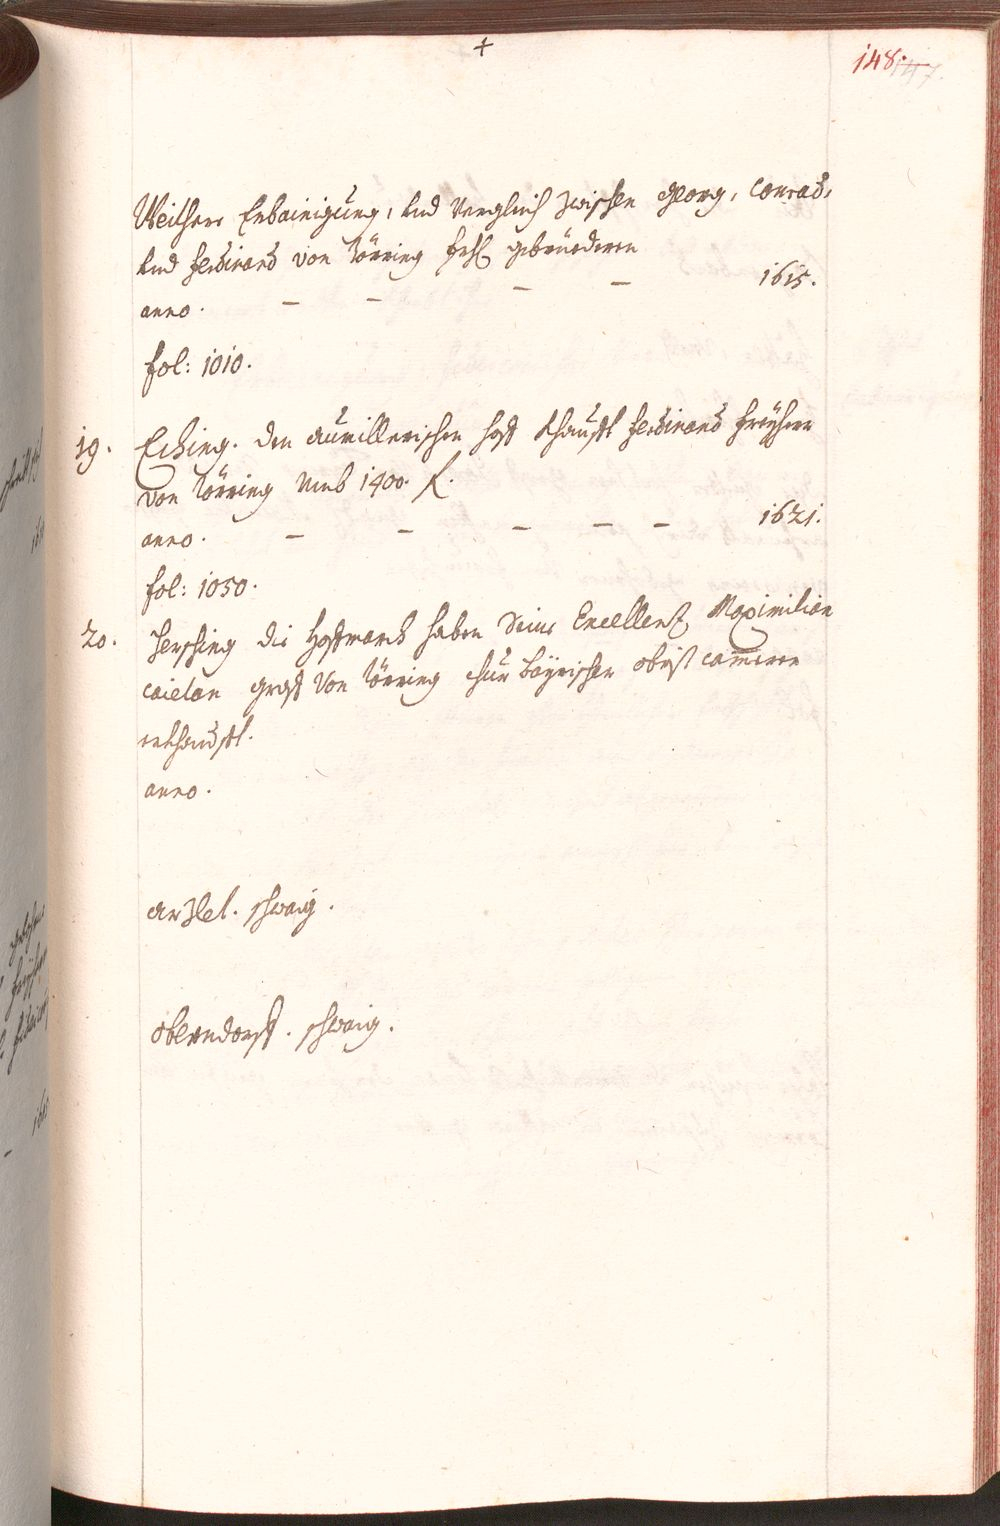 +
148. 147.
Weithere Erbainigung, und Verglich zwischen Georg, Conrad,
und Ferdinand von Törring frhl. gebrüederen
anno. – – – – 1615.
fol: 1010.
19. Eching. den aurillerischen hoff khaufft Ferdinand Freÿherr
von Törring umb 1400. f.
anno. – – – – – 1621.
fol: 1050.
20. Jersching die hoffmarch haben Seine Excellenz Maximilian
Caietan graff von Törring chur Bayrischer obrist camerer
erkhaufft.
anno.
arzlet. schwaig.
oberndorff. schwaig.